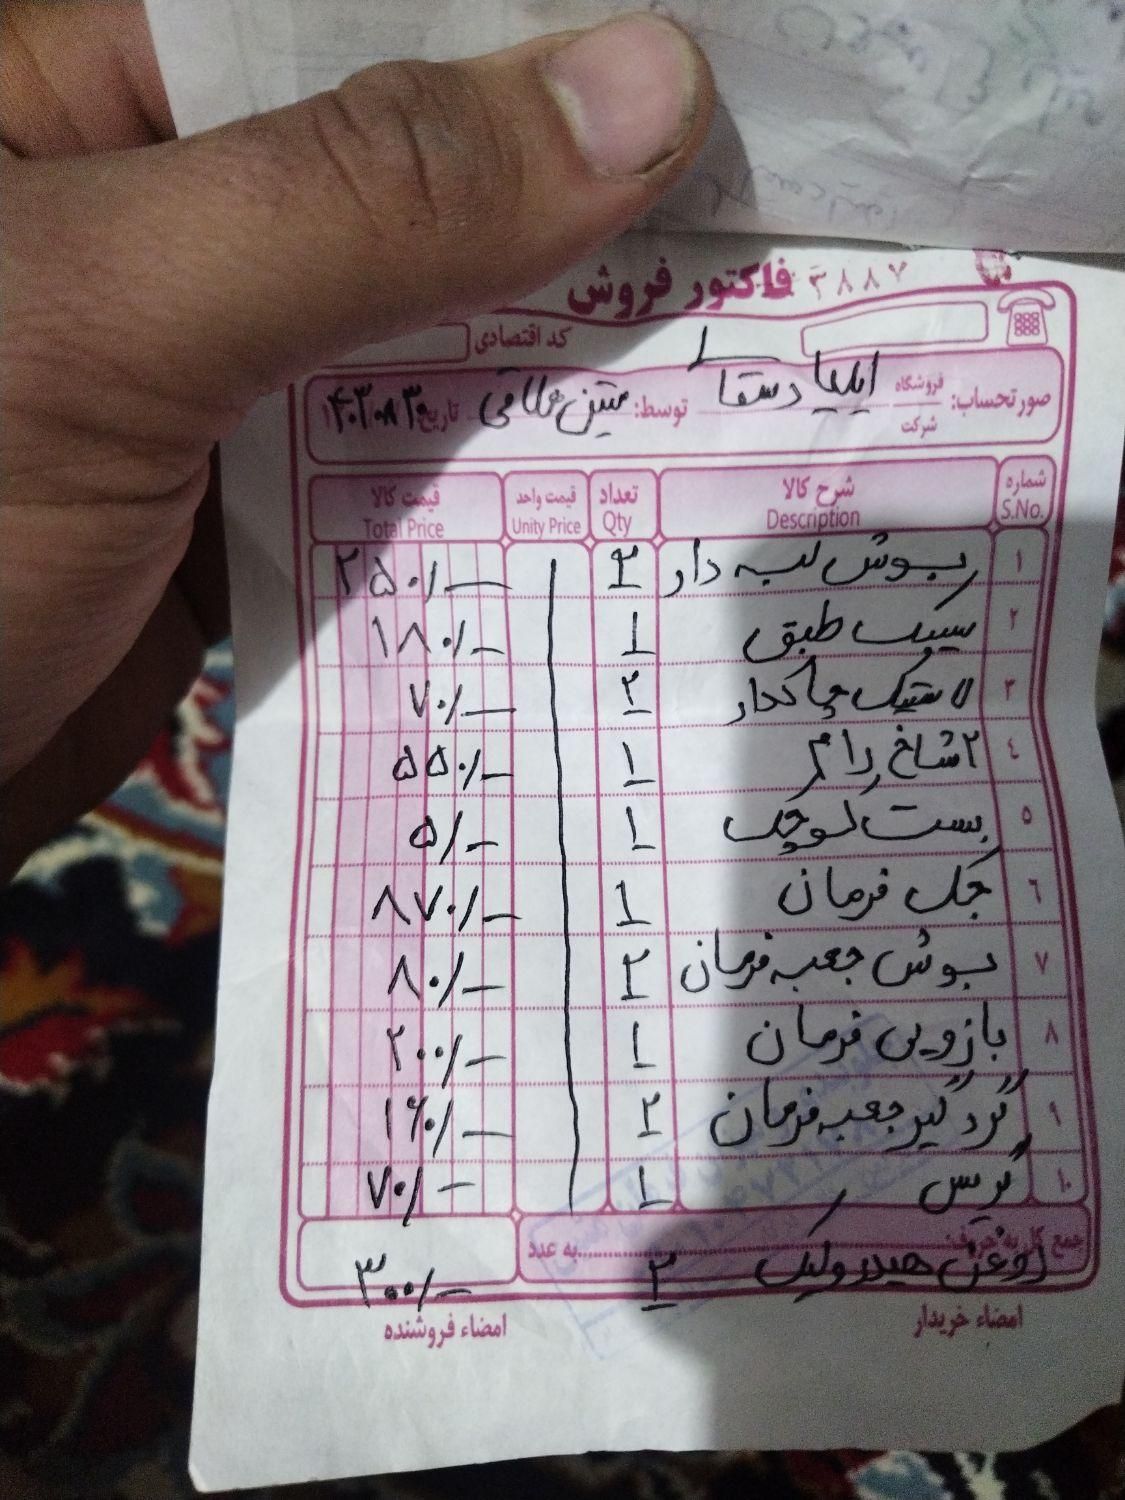 فاکتور فروش ۳۸۸۷
کد اقتصادی
صورتحساب: فروشگاه شرکت ایلیا توسط: متین تاریخ ۱۴۰۳/۰۸/۳۰
شماره S.No. شرح کالا Description تعداد Qty قیمت واحد Unity Price قیمت کالا Total Price
۱ بوش لبه دار ۲ ۲۵۰/-
۲ سیبک طبق ۱ ۱۸۰/-
۳ لاستیک چاکدار ۲ ۷۰/-
۴ ۲ شاخ رام ۱ ۵۵۰/-
۵ بست کوچک ۱ ۵/-
۶ جک فرمان ۱ ۸۷۰/-
۷ بوش جعبه فرمان ۲ ۸۰/-
۸ بازویی فرمان ۱ ۲۰۰/-
۹ گردگیر جعبه فرمان ۲ ۱۶۰/-
۱۰ گریس ۱ ۷۰/-
جمع کل به حروف: به عدد
روغن هیدرولیک ۲ ۳۰۰/-
امضاء خریدار امضاء فروشنده